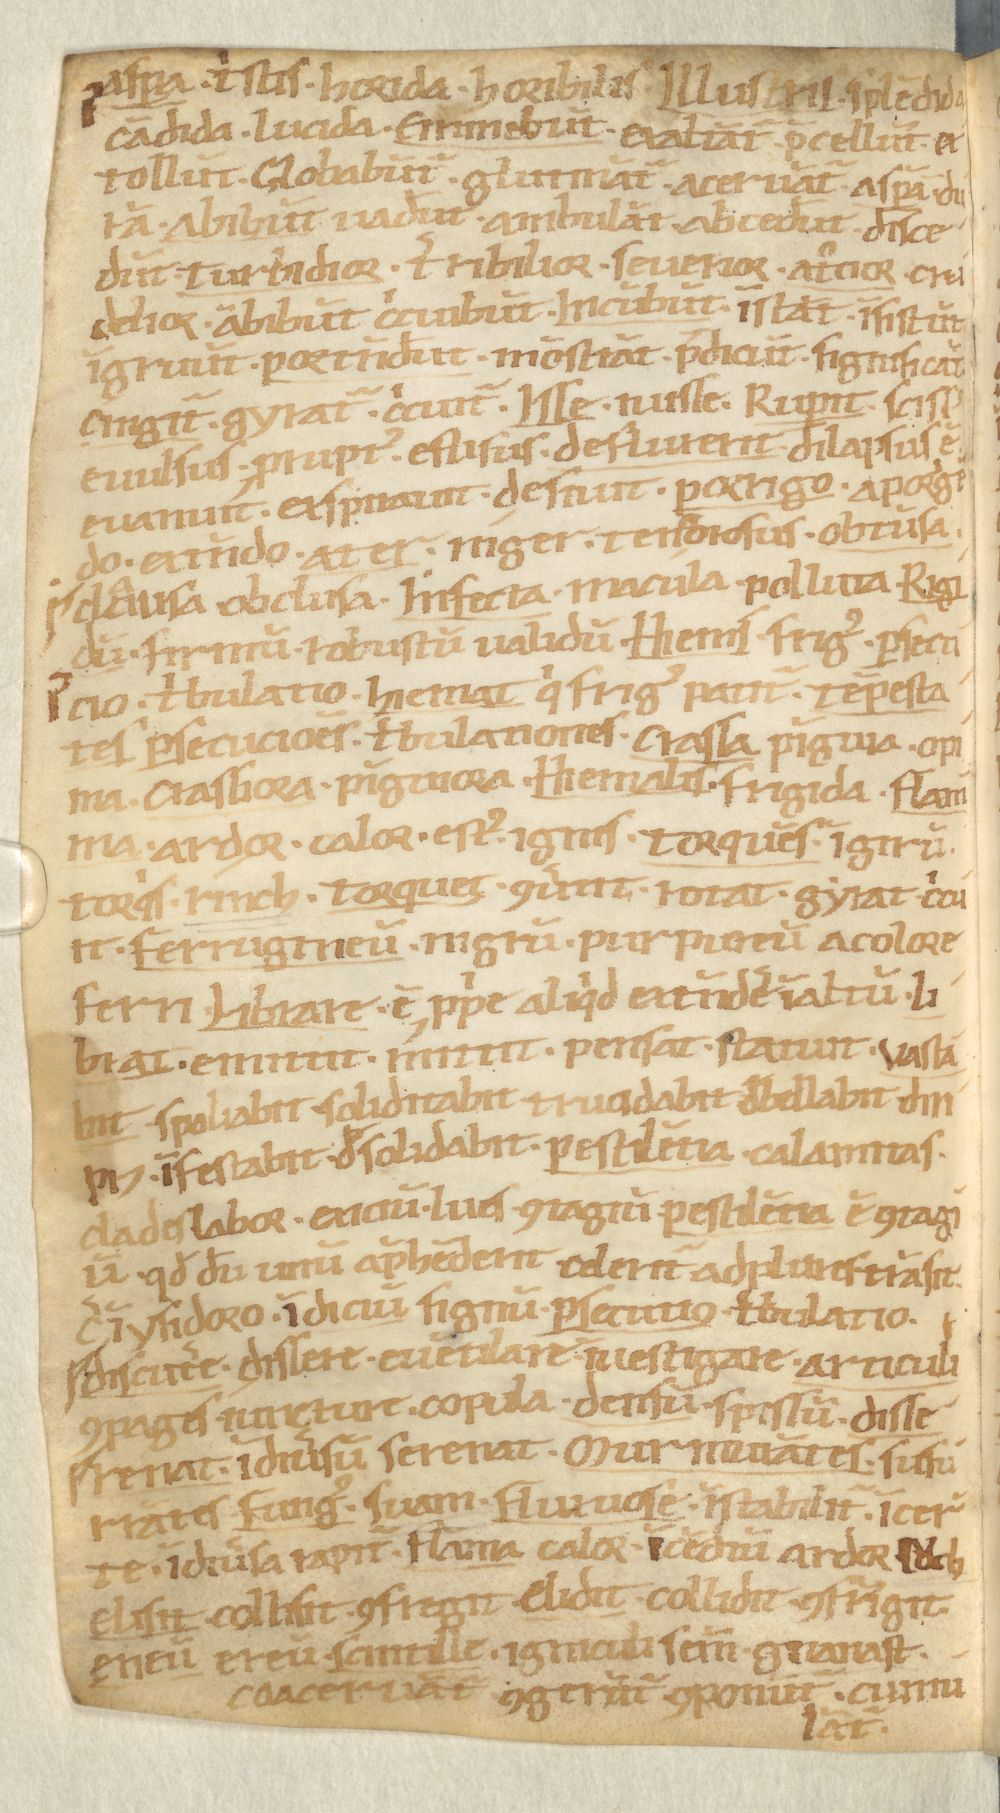 aspa · tͥstis · horida · horibilis · Illustris · splēdida
cādida · lucida · Eminebūt · exaltāt᷑ · p̄cellūt · ex
tollūt · Globabūt᷑ · glutināt᷑ · aceruāt᷑ · aspa · du
ra · Abibūt uadūt · ambulāt · abcedūt · disce
dūt · turbidior · t͛ribilior · seuerior · at͛cior · cru
delior · ābibūt cͥcuibūt · Incūbūt · īstāt · īsistūt
īgruūt · portēdūt · mōstrāt · p̄dicūt · significāt
cingit᷑ · gyrat᷑ · cͥcuit᷑ · Isse · iuisse · Rupit · scisſ
euulsus · prupt᷒ · effusus · defluxerit · dilapsus ē
euanuit · exspirauit · desinit · porrigo · aporge
do · extēdo · ater · niger · tenebrosus · obtusa ·
clausa · obclusa · Infecta · macula · polluta · Rigi
dū · firmū · robustū ualidū · Hiems · frig᷒ · psecu
cio · tͥbulatio · hiemat qͥ frig᷒ patit᷑ · tēpesta
tes psecucioēs · tͥbulationes · crassa pīguia · opi
ma · Crassiora · pīguiora · Hiemalis · frigida · flam
ma · ardor · calor · est᷒ · ignis · torquēs · īgirū ·
torqͥs · torquet · ꝯūtit · rotat · gyrat · cͥcu
it · ferrugineū · nigrū · purpureū a colore
ferri · Librare · ē ppͥe aliqͥd extēde͛ ī altū · li
brat · emittit · īmittit · pensat · statuit · uasta
bit · spoliabit · soliditabit · trucidabit debellabit · diri
piꝫ · īfestabit · desolidabit · pestilētia · calamitas ·
clades labor · exciū · lues · ꝯtagiū pestilētia ē ꝯtagi
ū · qđ dū unū ap̄hēderit celerit᷑ ad plures trāsit ·
c̄ ī ysidoro · īdiciū signū · psecutio · tͥbulatio ·
discute͛ · dissere · euētilare · īuestigare · articuli
ꝯpages · iūcture · copula · densū · spissū · disse
renat · ī diu͛sū serenat · Murmurātes · susu
rrātes fung᷒ · suam · fluxuose · īstabilit᷑ · īcer
te · ī diu͛sa rapit᷑ · flāma calor · īcēdiū ardor
elisit · collisit · ꝯfregit · Elidit · collidit · ꝯfrīgit ·
eneū ereū · scintille · igniculi
coaceruāt ꝯgerūt᷑ ꝯponūt᷑ · cumu
lāt᷑ ·